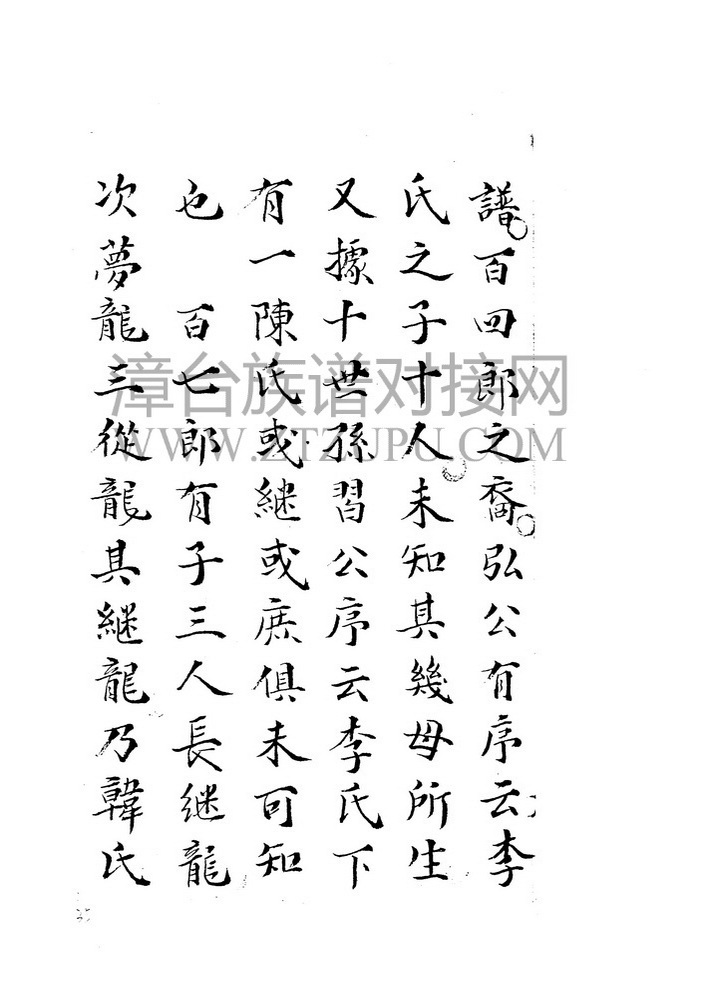 譜百四郎之裔弘公有序云李
氏之子十人未知其幾母所生
又據十世孫習公序云李氏下
有一陳氏或継或庶俱未可知
也　百七郎有子三人長継龍
次夢龍三從龍其継龍乃韓氏
漳台族谱对接网
WWW.ZTZUPU.COM